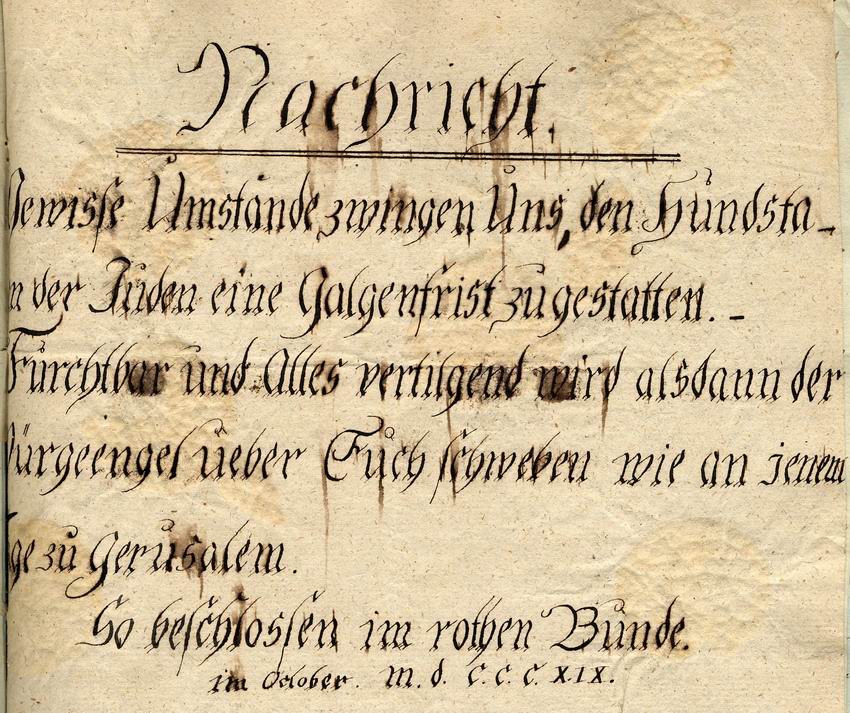 Nachricht.
Gewisse Umstände zwingen Uns, den Hundsta-
n der Juden eine Galgenfrist zu gestatten. -
Furchtbar und Alles vertilgend wird alsdann der
Würgeengel ueber Euch schweben wie an jenem
ge zu Jerusalem.
So beschlossen im rothen Bunde.
im October. M. d. C. C. C. XIX.